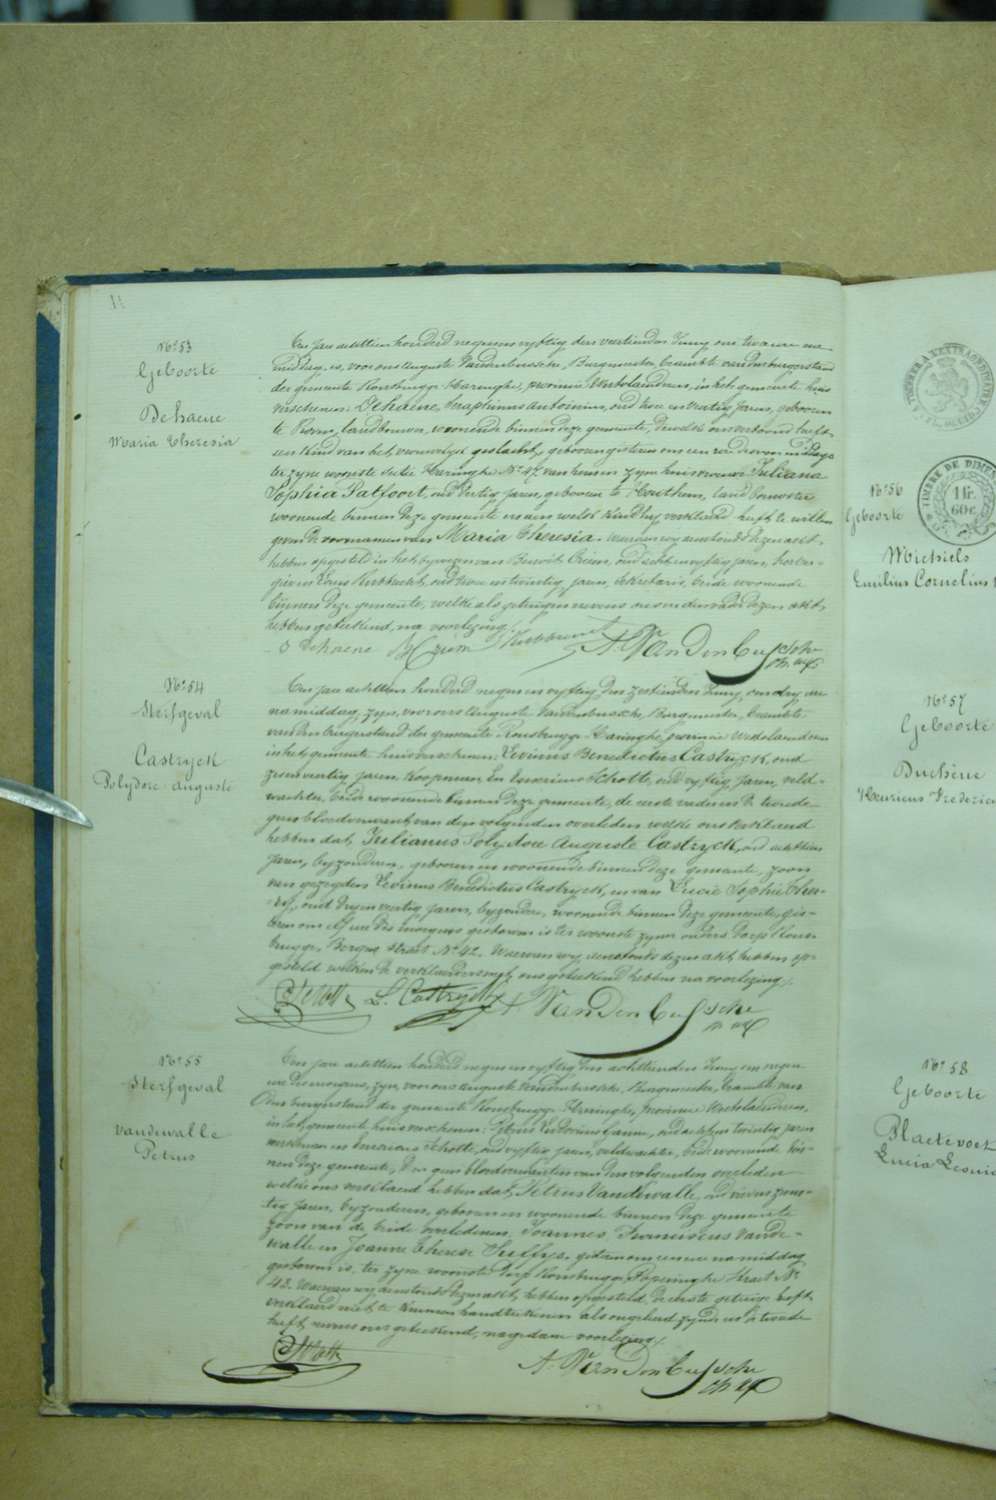 11
N° 53
Geboorte
Dehaene
Maria Theresia
Ten jare achttien honderd negen en vyftig den veertienden Juny om twaa ure na
middag, is, voor ons Auguste Vandenbussche, Burgmeester, beambte van den burgerstand
der gemeente Rousbrugge Haringhe, provincie Westvlaendren, in het gemeente huis
verschenen: Dehaene, Seraphinus Antoninus, oud twee en veertig jaren, geboren
te landbouwer, woonende binnen deze gemeente, dewelke ons vertoond heeft
een kind van het vrouwelyk geslacht, geboren gisteren om een ure voormiddags
ter zyne wooste Sectie Haringhe N° 47 van hem en zyne huisvrouw Juliana
Sophia Patfoort, oud dertig jaren, geboren te Houthem, landbouwster
woonende binnen deze gemeente en aen welk kind hy verklaerd heeft te willen
geven de voornamen van Maria Theresia. Waervan wy aenstonds dezen akt
hebben opgesteld in het bywezen van Benoit Criem, oud acht en vyftig jaren, herber-
gier en Louis oud twee en twintig jaren, Sekretaris, beide woonende
binnen deze gemeente, welke als getuigen nevens ons en den vader dezen akt
hebben geteekend, na voorlezing.
S Dehaene B Criem A. VanDenBussche
N° 54
Sterfgeval
Castryck
Polydore auguste
Ten jare achttien honderd negen en vyftig den zestienden Juny, om dry ure
namiddag, zyn, voor ons Auguste Vandenbussche, Burgmeester, beambte
van den burgerstand der gemeente Rousbrugge Haringhe, provincie Westvlaendren
in het gemeente huis verschenen: Levinus Benedictus Castryck, oud
zevenveertig jaren, koopman, En Enverinus Schotte, oud vyftig jaren, veld-
wachter, beide woonende binnen deze gemeente, de eerste vader en de tweede
geen bloedverwant van den volgenden overleden welke ons verklaerd
hebben dat, Julianus Polydore Auguste Castryck, oud achttien
jaren, byzondere, geboren en woonende binnen deze gemeente, zoon
van gezegden Levinus Benedictus Castryck, en van Lucie Sophie
oud dryen veertig jaren, byzondere, woonende binnen deze gemeente, gis-
teren om elf ure des morgens gestorven is ter wooste zyner ouders dorp Rous-
brugge, Bergue straet N° 42. Waervan wy aenstonds dezen akt hebben op-
gesteld welken de verklaerders met ons geteekend hebben na voorlezing.
Schotte L. Castryck A. VanDenBussche
N° 55
Sterfgeval
vandewalle
Petrus
Ten jare achttien honderd negen en vyftig den achttienden Juny om negen
ure des morgens, zyn, voor ons Auguste Vandenbussche, Burgmeester, beambte van
den burgerstand der gemeente Rousbrugge Haringhe, provincie Westvlaendren,
in het gemeente huis verschenen: Petrus Ludovicus oud acht en twintig jaren
en Enverinus Schotte, oud vyftig jaren, veldwachter, beide woonende bin-
nen deze gemeente, geen bloedverwanten van den volgenden overleden
welke ons verklaerd hebben dat, Petrus Vandewalle, oud vier en zeven-
tig jaren, byzonderen, geboren en woonende binnen deze gemeente
zoon van de beide overledenen Joannes Franciscus Vande-
walle en Jeanne Therese gisteren om eene ure namiddag
gestorven is, ter zyne wooste dorp Rousbrugge Poperinghe straet N°
42. Waervan wy aenstonds dezen akt hebben opgesteld, de eerste getuige heeft
verklaerd niet te kunnen handteekenen als ongeleerd zynde en de tweede
heeft nevens ons geteekend, na gedane voorlezing.
Schotte A. VanDenBussche
TIMBRE DE DIMEN
1 fr.
60c.
N° 56
Geboorte
Michiels
Emilius Cornelius
N° 57
Geboorte
Duchêne
Henricus Frederic
N° 58
Geboorte
Plaetevoet
Lucia